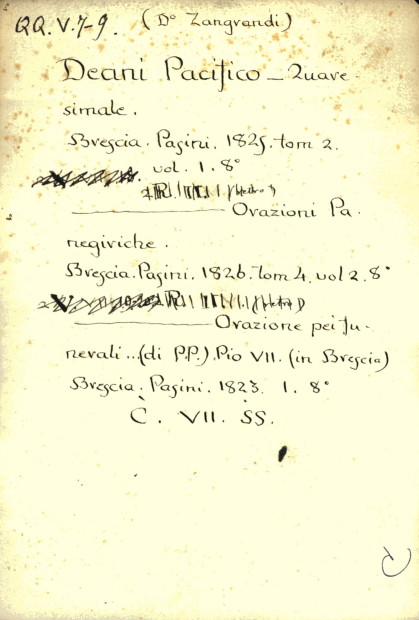 QQ. V. 7-9. (Dº Zangrandi)
Deani Pacifico — Quare-
simale.
Brescia. Pasini. 1825. tom 2.
vol. 1. 8°
Orazioni Pa-
negiriche.
Brescia. Pasini. 1826. tom 4. vol 2. 8°
Orazione pei fu-
nerali .. (di P.P.) Pio VII. (in Brescia)
Brescia. Pasini. 1823. 1. 8°
C. VII. SS.